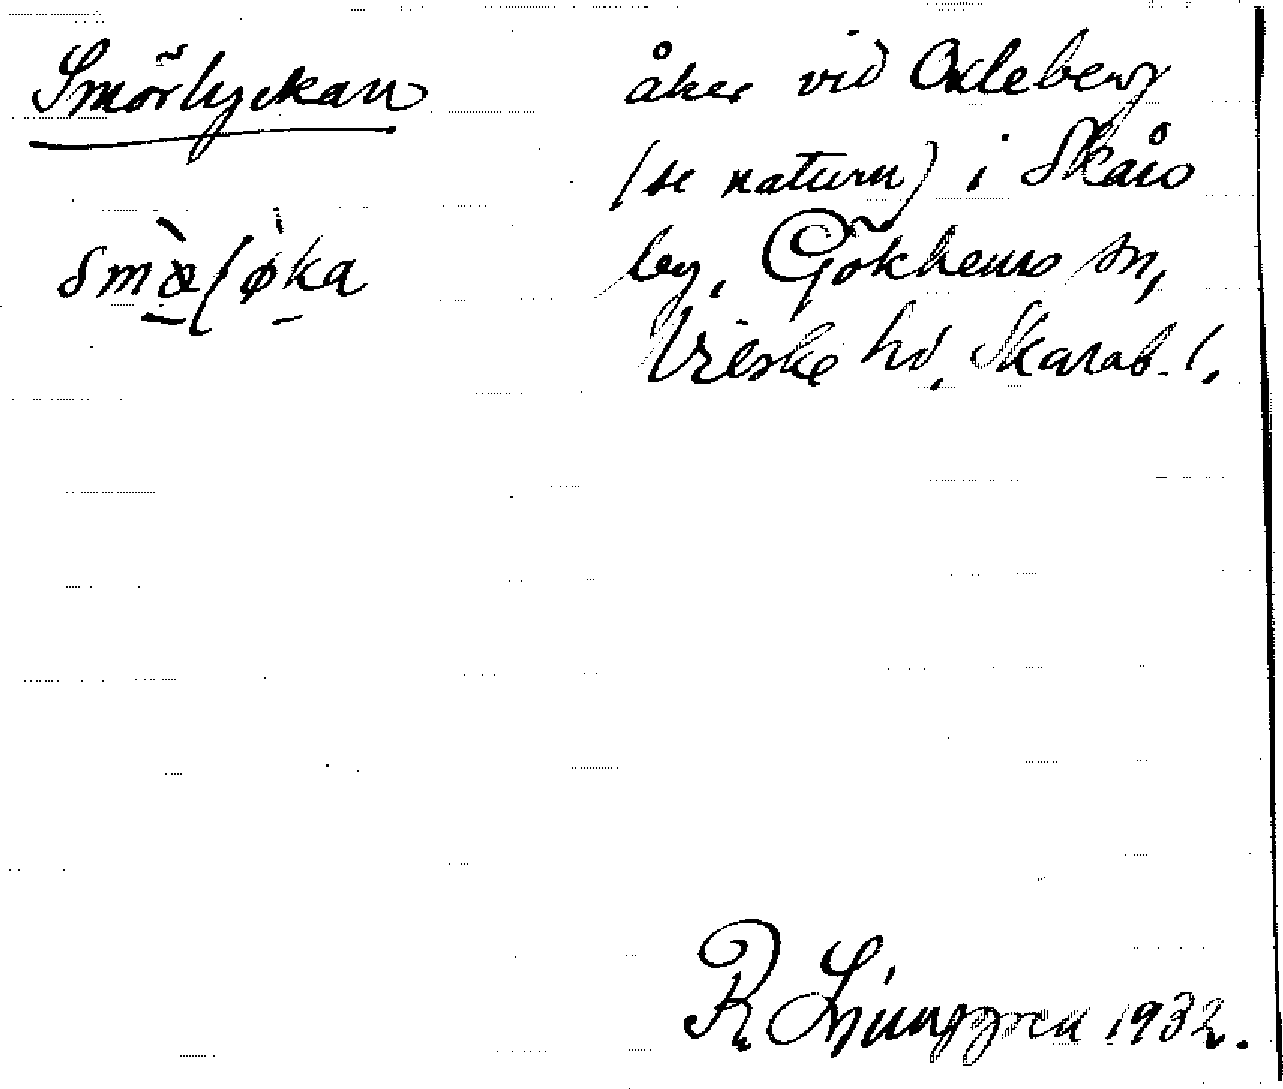 Smörlyckan
smæ̀løka
åker vid Oxleberg
(se naturn) i Skårs
by, Gökhems sn,
Vilske hd, Skarab. l.
R Ljunggren 1932.